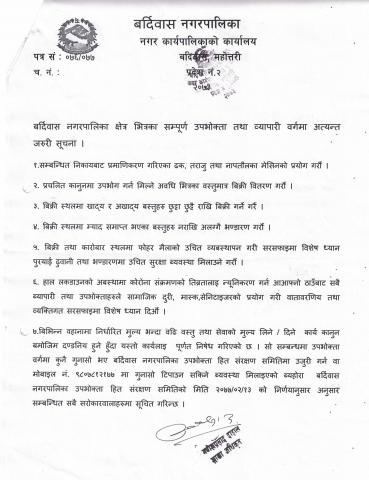 बर्दिवास नगरपालिका
नगर कार्यपालिकाको कार्यालय
पत्र सं : ०७६/०७७
बर्दिबास, महोत्तरी
च. नं. :
प्रदेश नं.२
बर्दिवास नगरपालिका क्षेत्र भित्रका सम्पूर्ण उपभोक्ता तथा व्यापारी वर्गमा अत्यन्त
जरुरी सूचना ।
१.सम्बन्धित निकायबाट प्रमाणिकरण गरिएका ढक, तराजु तथा नापतौलका मेसिनको प्रयोग गरौं ।
२. प्रचलित कानुनमा उपभोग गर्न मिल्ने अवधि भित्रका वस्तुमात्र बिक्री वितरण गरौं ।
३. बिक्री स्थलमा खाद्य र अखाद्य बस्तुहरु छुट्टा छुट्टै राखि बिक्री गर्ने गरौं ।
४. बिक्री स्थलमा म्याद समाप्त भएका बस्तुहरु नराखी अलग्गै भण्डारण गरौं ।
५. बिक्री तथा कारोबार स्थलमा फोहर मैलाको उचित व्यबस्थापन गरी सरसफाइमा विशेष ध्यान
पुरयाई ढुवानी तथा भण्डारणमा उचित सुरक्षा ब्यवस्था मिलाउने गरौं ।
६. हाल लकडाउनको अवस्थामा कोरोना संक्रमणको तिब्रतालाइ न्यूनिकरण गर्न आआफ्नो ठाउँबाट सबै
ब्यापारी तथा उपभोक्ताहरुले सामाजिक दुरी, मास्क,सेनिटाइजरको प्रयोग गरी वातावरणिय तथा
व्यक्तिगत सरसफाइमा विशेष ध्यान दिऔं ।
७.बिभिन्न वहानामा निर्धारित मुल्य भन्दा वढि वस्तु तथा सेवाको मुल्य लिने / दिने कार्य कानून
बमोजिम दण्डनिय हुने हुँदा यस्तो कार्यलाइ पूर्णत निषेध गरिएको छ । सो सम्बन्धमा उपभोक्ता
वर्गमा कुनै गुनासो भए बर्दिवास नगरपालिका उपभोक्ता हित संरक्षण समितिमा उजुरी गर्न वा
मोबाइल नं. ९८०७८१२१७७ मा गुनासो टिपाउन सकिने ब्यवस्था मिलाइएको ब्यहोरा बर्दिवास
नगरपालिका उपभोक्ता हित संरक्षण समितिको मिति २०७७/०२/१३ को निर्णयानुसार अनुसार
सम्बन्धित सबै सरोकारवालाहरुमा सूचित गरिन्छ ।